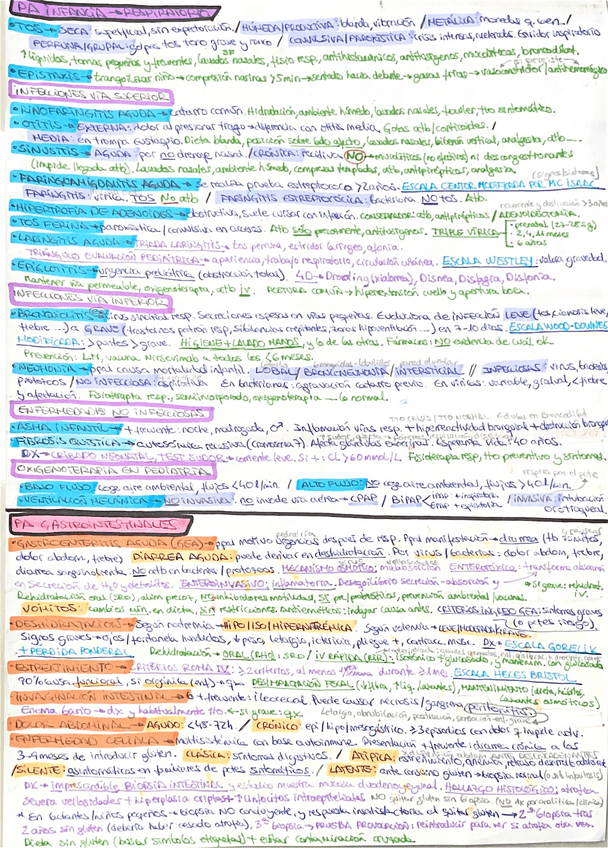 PA INFANCIA → RESPIRATORIO
• TOS → SECA: superficial, sin expectoración / HÚMEDA/PRODUCTIVA: blanda, vibración / METÁLICA: monedas q. caen /
PERRUNA/CRUPAL: golpes tos tono grave y ronco / CONVULSIVA/PAROXÍSTICA: crisis intensas, aceleradas. Estridor inspiratorio
↑ líquidos, tomas pequeñas y frecuentes, lavados nasales, fisio resp, antihistamínicos, antitusígenos, mucolíticos, broncodilat.
• EPISTAXIS → tranquilizar niño → compresión narinas >5min → sentado hacia delante → gasas frías → vasoconstrictor / antihemorrágico
INFECCIONES VÍA SUPERIOR
• RINOFARINGITIS AGUDA → catarro común. Hidratación, ambiente húmedo, lavados nasales, fowler, tto sintomático.
• OTITIS → EXTERNA: dolor al presionar trago → diferencia con otitis media. Gotas atb / corticoides. /
MEDIA: en trompa Eustaquio. Dieta blanda, posición sobre lado afecto, lavados nasales, biberón vertical, analgesia, atb...
• SINUSITIS → AGUDA: por no drenaje nasal / CRÓNICA: recidiva. NO → mucolíticos (no efectivo) ni descongestionantes
(impide llegada atb). Lavados nasales, ambiente húmedo, compresas templadas, atb, antipiréticos, analgesia.
• FARINGOAMIGDALITIS AGUDA → se realiza prueba estreptococo >2años. ESCALA CENTOR MODIFICADA POR MC ISAAC (signos/síntomas)
FARINGITIS: vírica. TOS. No atb / FARINGITIS ESTREPTOCÓCICA: bacteriana. NO tos. Atb.
• HIPERTROFIA DE ADENOIDES → obstructiva, suele cursar con infección. CONSERVADOR: atb, antipiréticos / ADENOIDECTOMÍA: recurrente y obstrucción >3años
• TOS FERINA → paroxística / convulsiva en accesos. Atb solo precozmente, antitusígenos. TRIPLE VÍRICA
• prenatal (27-28 sg)
• 2, 4, 11 meses
• 6 años
• LARINGITIS AGUDA → TRIADA LARINGITIS: tos perruna, estridor laríngeo, afonía.
TRIÁNGULO EVALUACIÓN PEDIÁTRICA → apariencia, trabajo respiratorio, circulación cutánea. ESCALA WESTLEY: valora gravedad.
• EPIGLOTITIS → urgencia pediátrica (obstrucción total). 4D → Drooling (sialorrea), Disnea, Disfagia, Disfonía.
Mantener vía permeable, oxigenoterapia, atb iv. POSTURA COMÚN → hiperextensión cuello y apertura boca.
INFECCIONES VÍA INFERIOR
• BRONQUIOLITIS → virus sincitial resp. Secreciones espesas en vías pequeñas. Evoluciona de infección LEVE (tos, cianosis leve,
fiebre ...) a GRAVE (trastornos patrón resp, sibilancias, crepitantes, zonas hipoventilación ...) en 7-10 días. ESCALA WOOD-DOWNES
MODIFICADA: >puntos > grave. HIGIENE + LAVADO MANOS, y o de las otras. Fármacos: NO evidencia de cuál ok.
Prevención: LM, vacuna Nirsevimab a todos los <6 meses.
• NEUMONÍA → ppal causa mortalidad infantil. LOBAL / BRONCONEUMONÍA / INTERSTICIAL // INFECCIOSAS: virus, bacterias,
protozoos / NO INFECCIOSA: aspirativa. En bacterianas: agravación catarro previo. En víricas: variable, gradual, ± fiebre
y afectación. Fisioterapia resp, semiincorporado, oxigenoterapia → o normal.
ENFERMEDADES NO INFECCIOSAS
• ASMA INFANTIL → + frecuente noche, madrugada, ♂. Inflamación vías resp. + hiperreactividad bronquial + obstrucción bronquial
• FIBROSIS QUÍSTICA → autosómica recesiva (cromosoma 7). Afecta glándulas exocrinas. Esperanza vida >40 años.
DX → CRIBADO NEONATAL, TEST SUDOR → corriente leve. Si +: CL >60 mmol/L. Fisioterapia resp, tto preventivo y síntomas.
OXIGENOTERAPIA EN PEDIATRÍA
• BAJO FLUJO: coge aire ambiental, flujos <40l/min. / ALTO FLUJO: NO coge aire ambiental, flujos >40l/min.
• VENTILACIÓN MECÁNICA → NO INVASIVA: no invade vía aérea → CPAP / BIPAP / INVASIVA: intubación
orotraqueal
PA GASTROINTESTINALES
• GASTROENTERITIS AGUDA (GEA) → ppal motivo urgencias después de resp. Ppal manifestación → diarrea (tb vómitos,
dolor abdom, fiebre). DIARREA AGUDA: puede derivar en deshidratación. Por virus / bacterias: dolor abdom, fiebre,
diarrea sanguinolenta. NO atb en bacterias / protozoos. MECANISMO OSMÓTICO: ENTEROTÓXICA: transforma absorción
en secreción de H2O y electrolitos. ENTEROINVASIVO: inflamatoria. Desequilibrio secreción-absorción y
Rehidratación oral (SRO), alim precoz, NO inhibidores motilidad, SI pre/probióticos, prevención ambiental, vacunas.
• VÓMITOS: cambios mín. en dieta, sin restricciones. Antieméticos: indagar causa antes. CRITERIOS INGRESO GEA: síntomas graves
(o ptes riesgo).
• DESHIDRATACIÓN → Según natremia → HIPO/ISO/HIPERNATRÉMICA. Según volemia →
Signos graves → ojos / fontanela hundidos, ↓ peso, letargia, ictericia, pliegue +, contracc. musc. Dx → ESCALA GORELICK
+ PÉRDIDA PONDERAL. Rehidratación → ORAL (RHO): SRO / IV RÁPIDA (RIR): isotónico + glucosado, y mantenim. con glucosado
• ESTREÑIMIENTO → CRITERIOS ROMA IV: ≥2 criterios, al menos 1 semana durante ≥1 mes. ESCALA HECES BRISTOL
90% causa funcional, si orgánica (mal) → qx. DESIMPACTACIÓN FECAL (vía fisio, Mg, laxantes), MANTENIMIENTO (dieta, hábitos,
laxantes osmóticos)
• INVAGINACIÓN INTESTINAL → + frecuente: ileocecal. Puede causar necrosis / gangrena (peritonitis)
Enema bario → dx y habitualmente tto. ← si grave: qx. Letargia, obnubilación, postración, sensación enf. grave
• DOLOR ABDOMINAL → AGUDO: <48-72h / CRÓNICO: epi / hipo / mesogástrico. ≥3 episodios con dolor impide activ.
• ENFERMEDAD CELÍACA → multisistémica con base autoinmune. Presentación + frecuente: diarrea crónica en
3-9 meses de introducir gluten. CLÁSICA: síntomas digestivos. / ATÍPICA: estreñimiento, anemia, retraso desarrollo
/ SILENTE: asintomáticos en familiares de ptes sintomáticos. / LATENTE: ante consumo gluten → biopsia normal
DX → imprescindible BIOPSIA INTESTINAL y estudio muestra mucosa duodenoyeyunal. HALLAZGO HISTOLÓGICO: atrofia
severa vellosidades + hiperplasia criptas + ↑ linfocitos intraepiteliales. NO quitar gluten sin biopsia (No dx por analítica/clínica)
* En lactantes/niños pequeños → biopsia NO concluyente, y respuesta insatisfactoria al quitar gluten → 2ª biopsia tras
2 años sin gluten (debería haber cesado atrofia), 3ª biopsia → PRUEBA PROVOCACIÓN: reintroducir para ver si atrofia otra vez.
Dieta sin gluten (buscar símbolos etiquetas) + evitar contaminación cruzada.